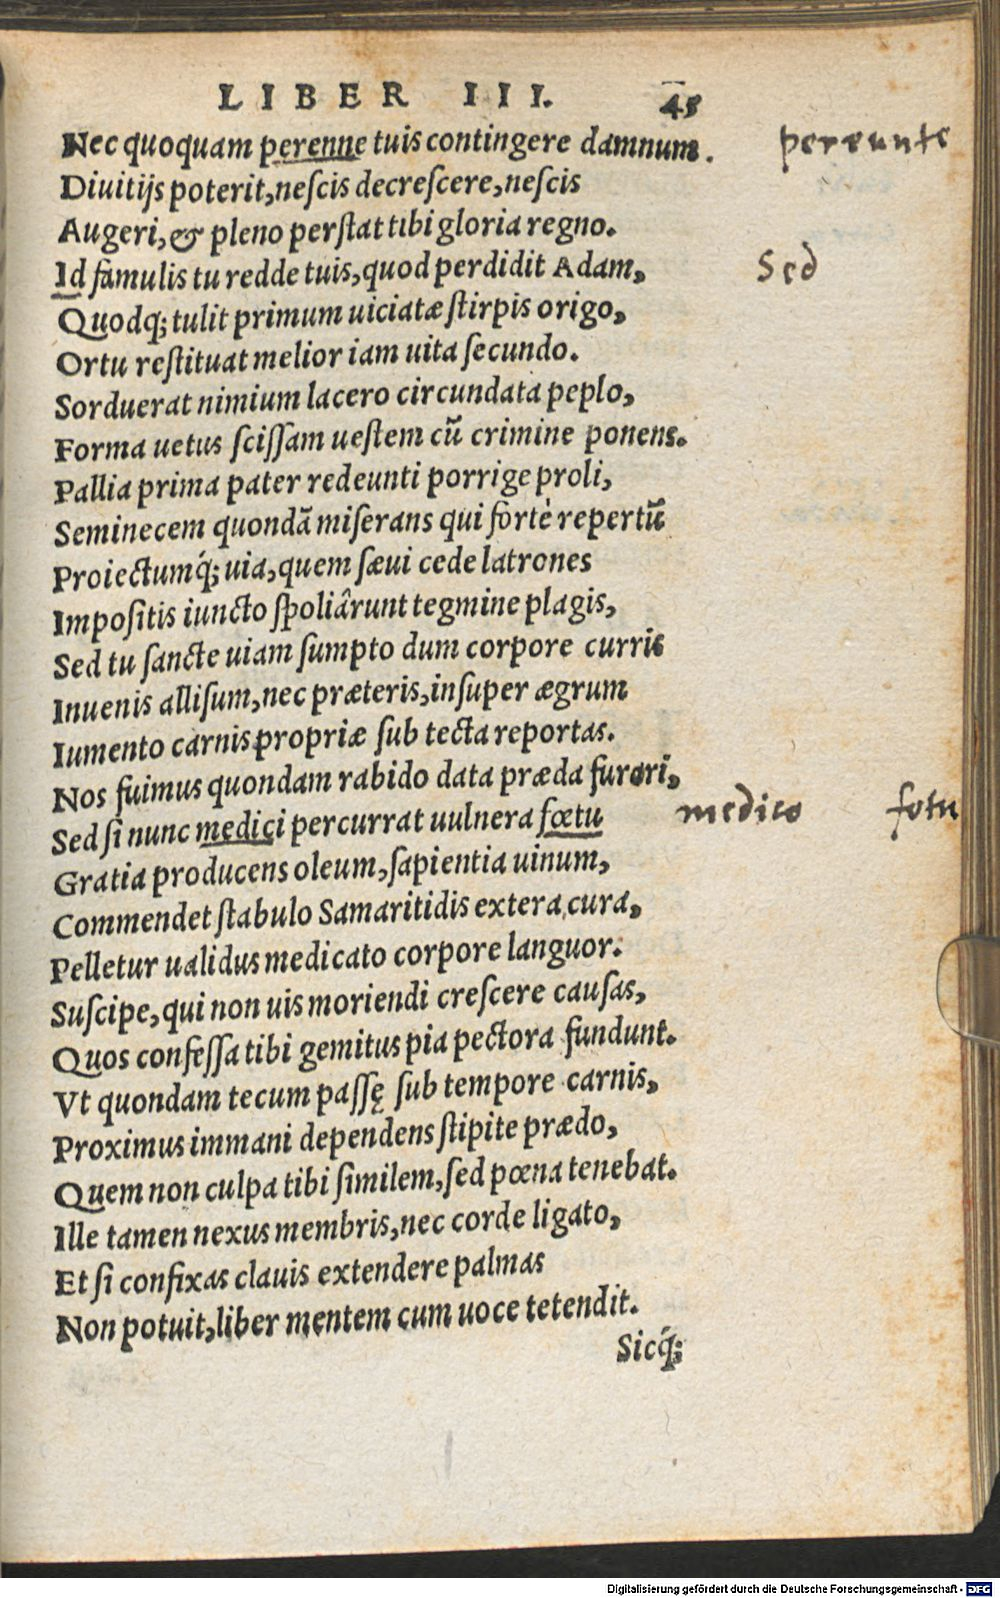 LIBER III. 45
Nec quoquam perenne tuis contingere damnum. pereunte
Diuitijs poterit, nescis decrescere, nescis
Augeri, & pleno perstat tibi gloria regno.
Id famulis tu redde tuis, quod perdidit Adam, Sed
Quodq; tulit primum uiciatæ stirpis origo,
Ortu restituat melior iam uita secundo.
Sorduerat nimium lacero circundata peplo,
Forma uetus scissam uestem cū crimine ponens.
Pallia prima pater redeunti porrige proli,
Seminecem quondā miserans qui fortè repertū
Proiectumq́; uia, quem sæui cede latrones
Impositis iuncto spoliârunt tegmine plagis,
Sed tu sancte uiam sumpto dum corpore curris
Inuenis allisum, nec præteris, insuper ægrum
Iumento carnis propriæ sub tecta reportas.
Nos fuimus quondam rabido data præda furori,
Sed si nunc medici percurrat uulnera fœtu medico fotu
Gratia producens oleum, sapientia uinum,
Commendet stabulo Samaritidis extera cura,
Pelletur ualidus medicato corpore languor.
Suscipe, qui non uis moriendi crescere causas,
Quos confessa tibi gemitus pia pectora fundunt.
Vt quondam tecum passę sub tempore carnis,
Proximus immani dependens stipite prædo,
Quem non culpa tibi similem, sed pœna tenebat.
Ille tamen nexus membris, nec corde ligato,
Et si confixas clauis extendere palmas
Non potuit, liber mentem cum uoce tetendit.
Sicq́;
Digitalisierung gefördert durch die Deutsche Forschungsgemeinschaft - DFG